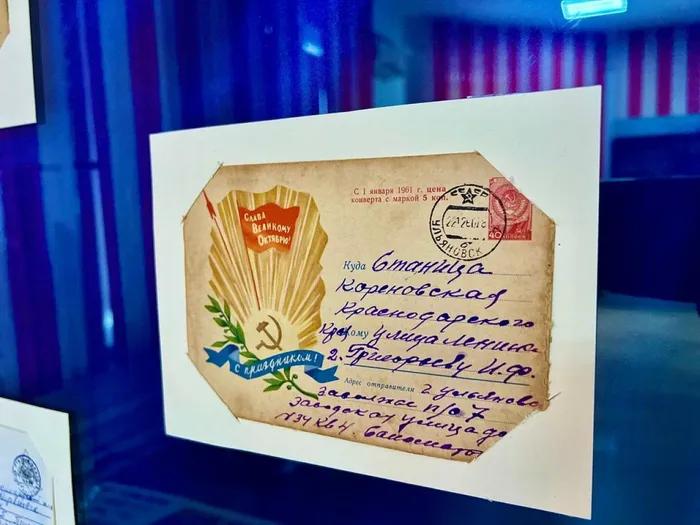 СЛАВА
ВЕЛИКОМУ
ОКТЯБРЮ!
С ПРАЗДНИКОМ!
С 1 января 1961 г. цена
конверта с маркой 5 коп.
СССР
УЛЬЯНОВСК
40
Куда Станица
Кореновская
Краснодарского
Кому улица Ленина
2. Григорьеву И.Ф
Адрес отправителя г Ульяновс
п/о 7
улица